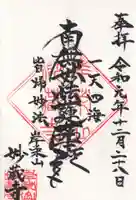 奉拝 令和元年十二月二十八日
一天四海
南無妙法蓮華経
皆帰妙法
妙蔵寺